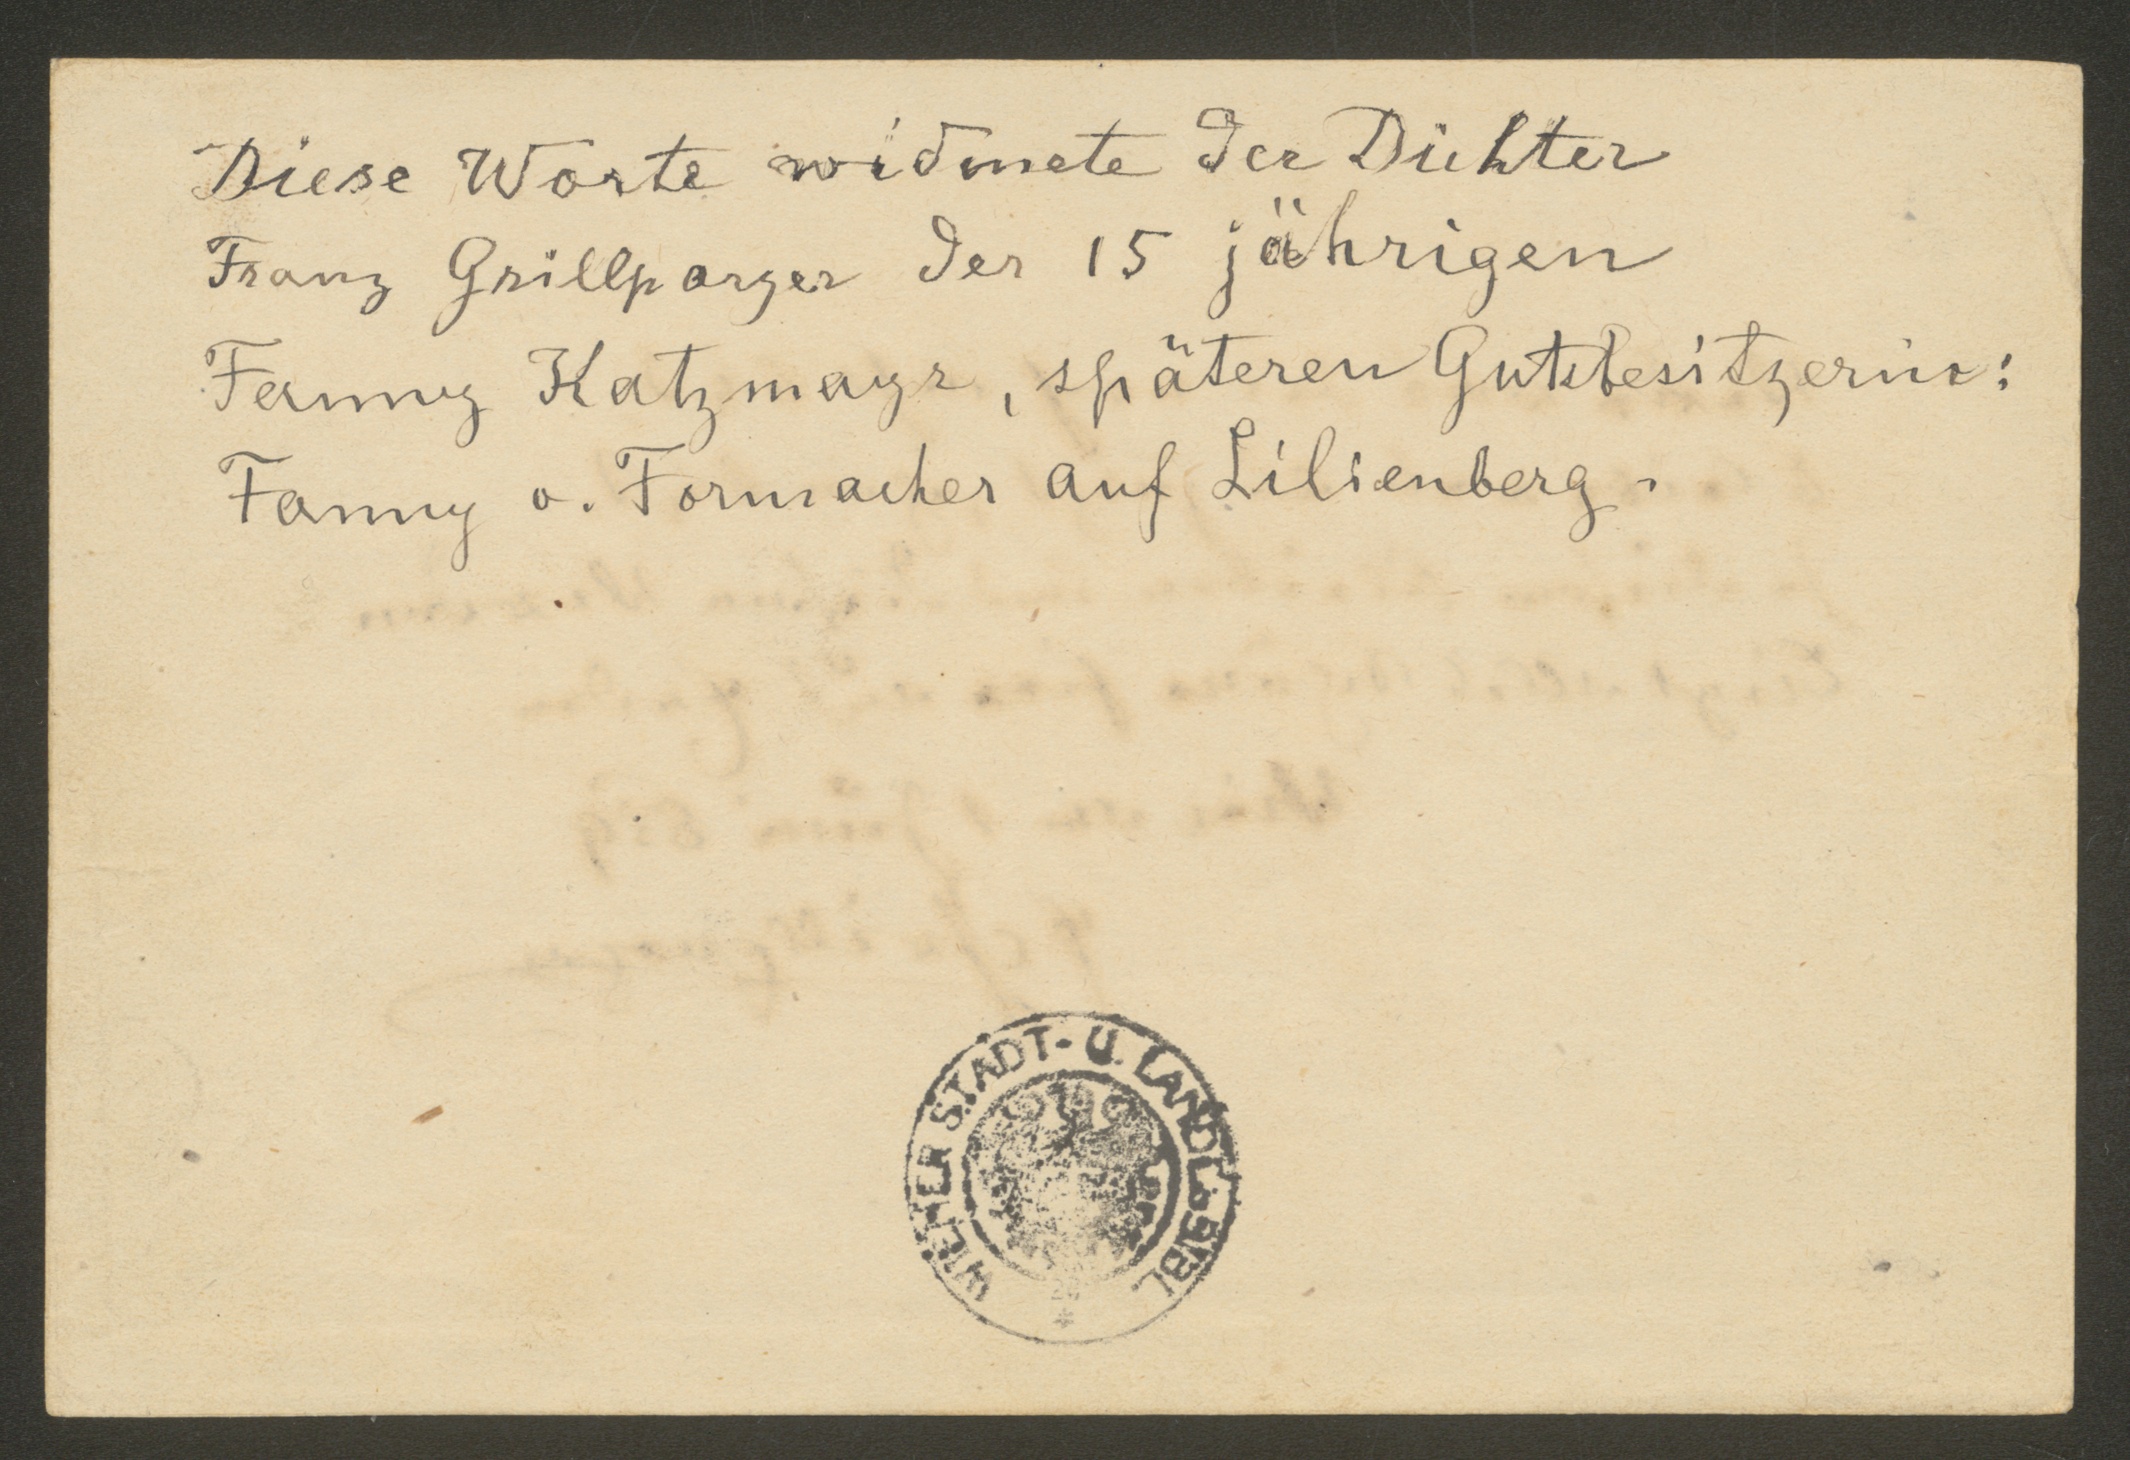 Diese Worte widmete der Dichter
Franz Grillparzer der 15 jährigen
Fanny Katzmayr, späteren Gutsbesitzerin:
Fanny v. Formacher auf Lilienberg.
WIENER STADT- U. LANDES-BIBL.